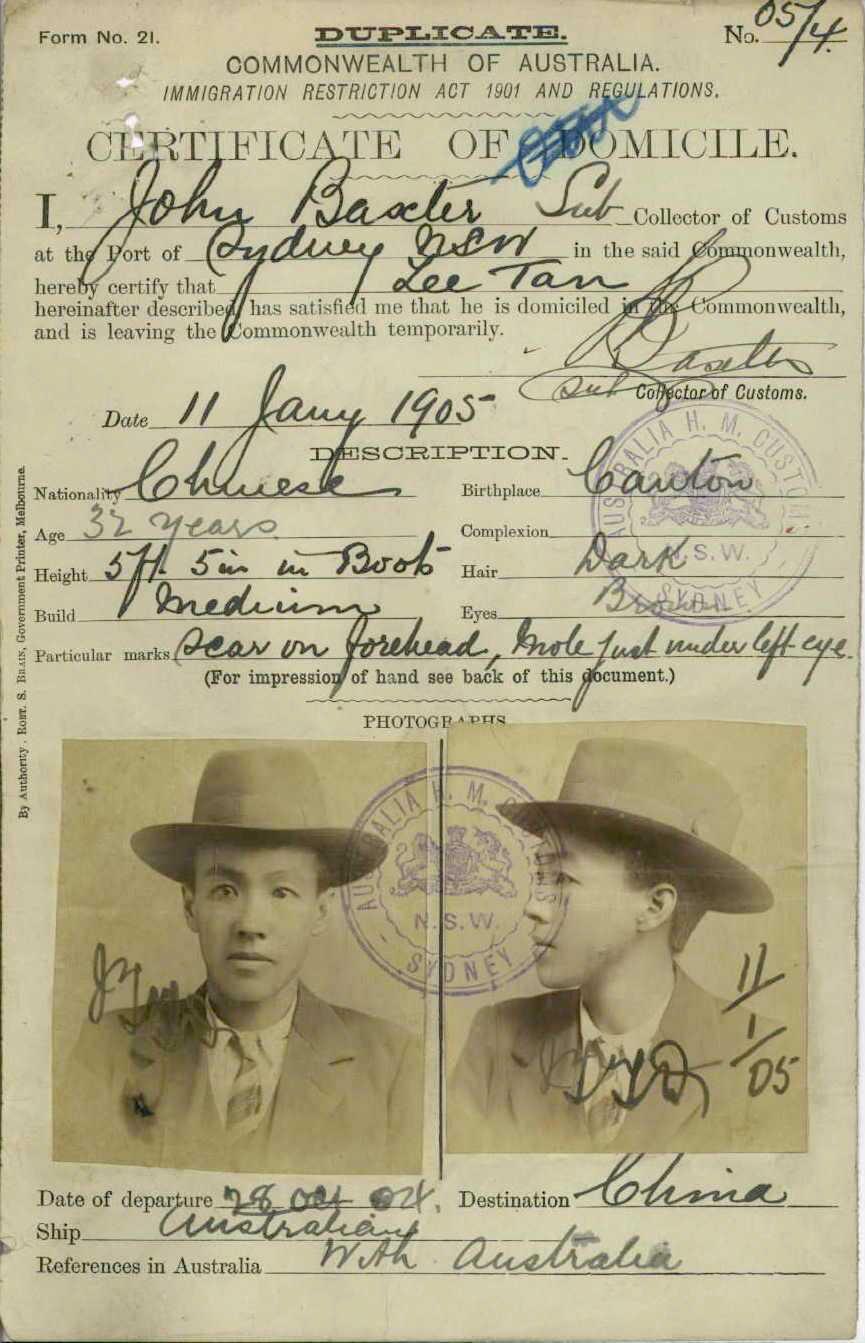 Form No. 21.
DUPLICATE.
No. 05/4
COMMONWEALTH OF AUSTRALIA.
IMMIGRATION RESTRICTION ACT 1901 AND REGULATIONS.
CERTIFICATE OF DOMICILE.
I, John Baxter Sub Collector of Customs
at the Port of Sydney NSW in the said Commonwealth,
hereby certify that Lee Tan
hereinafter described, has satisfied me that he is domiciled in the Commonwealth,
and is leaving the Commonwealth temporarily.
Baxter
Sub Collector of Customs.
Date 11 Jany 1905
DESCRIPTION.
Nationality Chinese Birthplace Canton
Age 32 years Complexion
Height 5ft 5in in Boots Hair Dark
Build Medium Eyes Brown
Particular marks Scar on forehead, Mole just under left eye.
(For impression of hand see back of this document.)
AUSTRALIA H. M. CUSTOMS
N.S.W.
SYDNEY
By Authority: ROBT. S. BRAIN, Government Printer, Melbourne.
PHOTOGRAPHS
AUSTRALIA H. M. CUSTOMS
N.S.W.
SYDNEY
11/1/05
Date of departure 28 Oct 04. Destination China
Ship Australian
References in Australia Australia